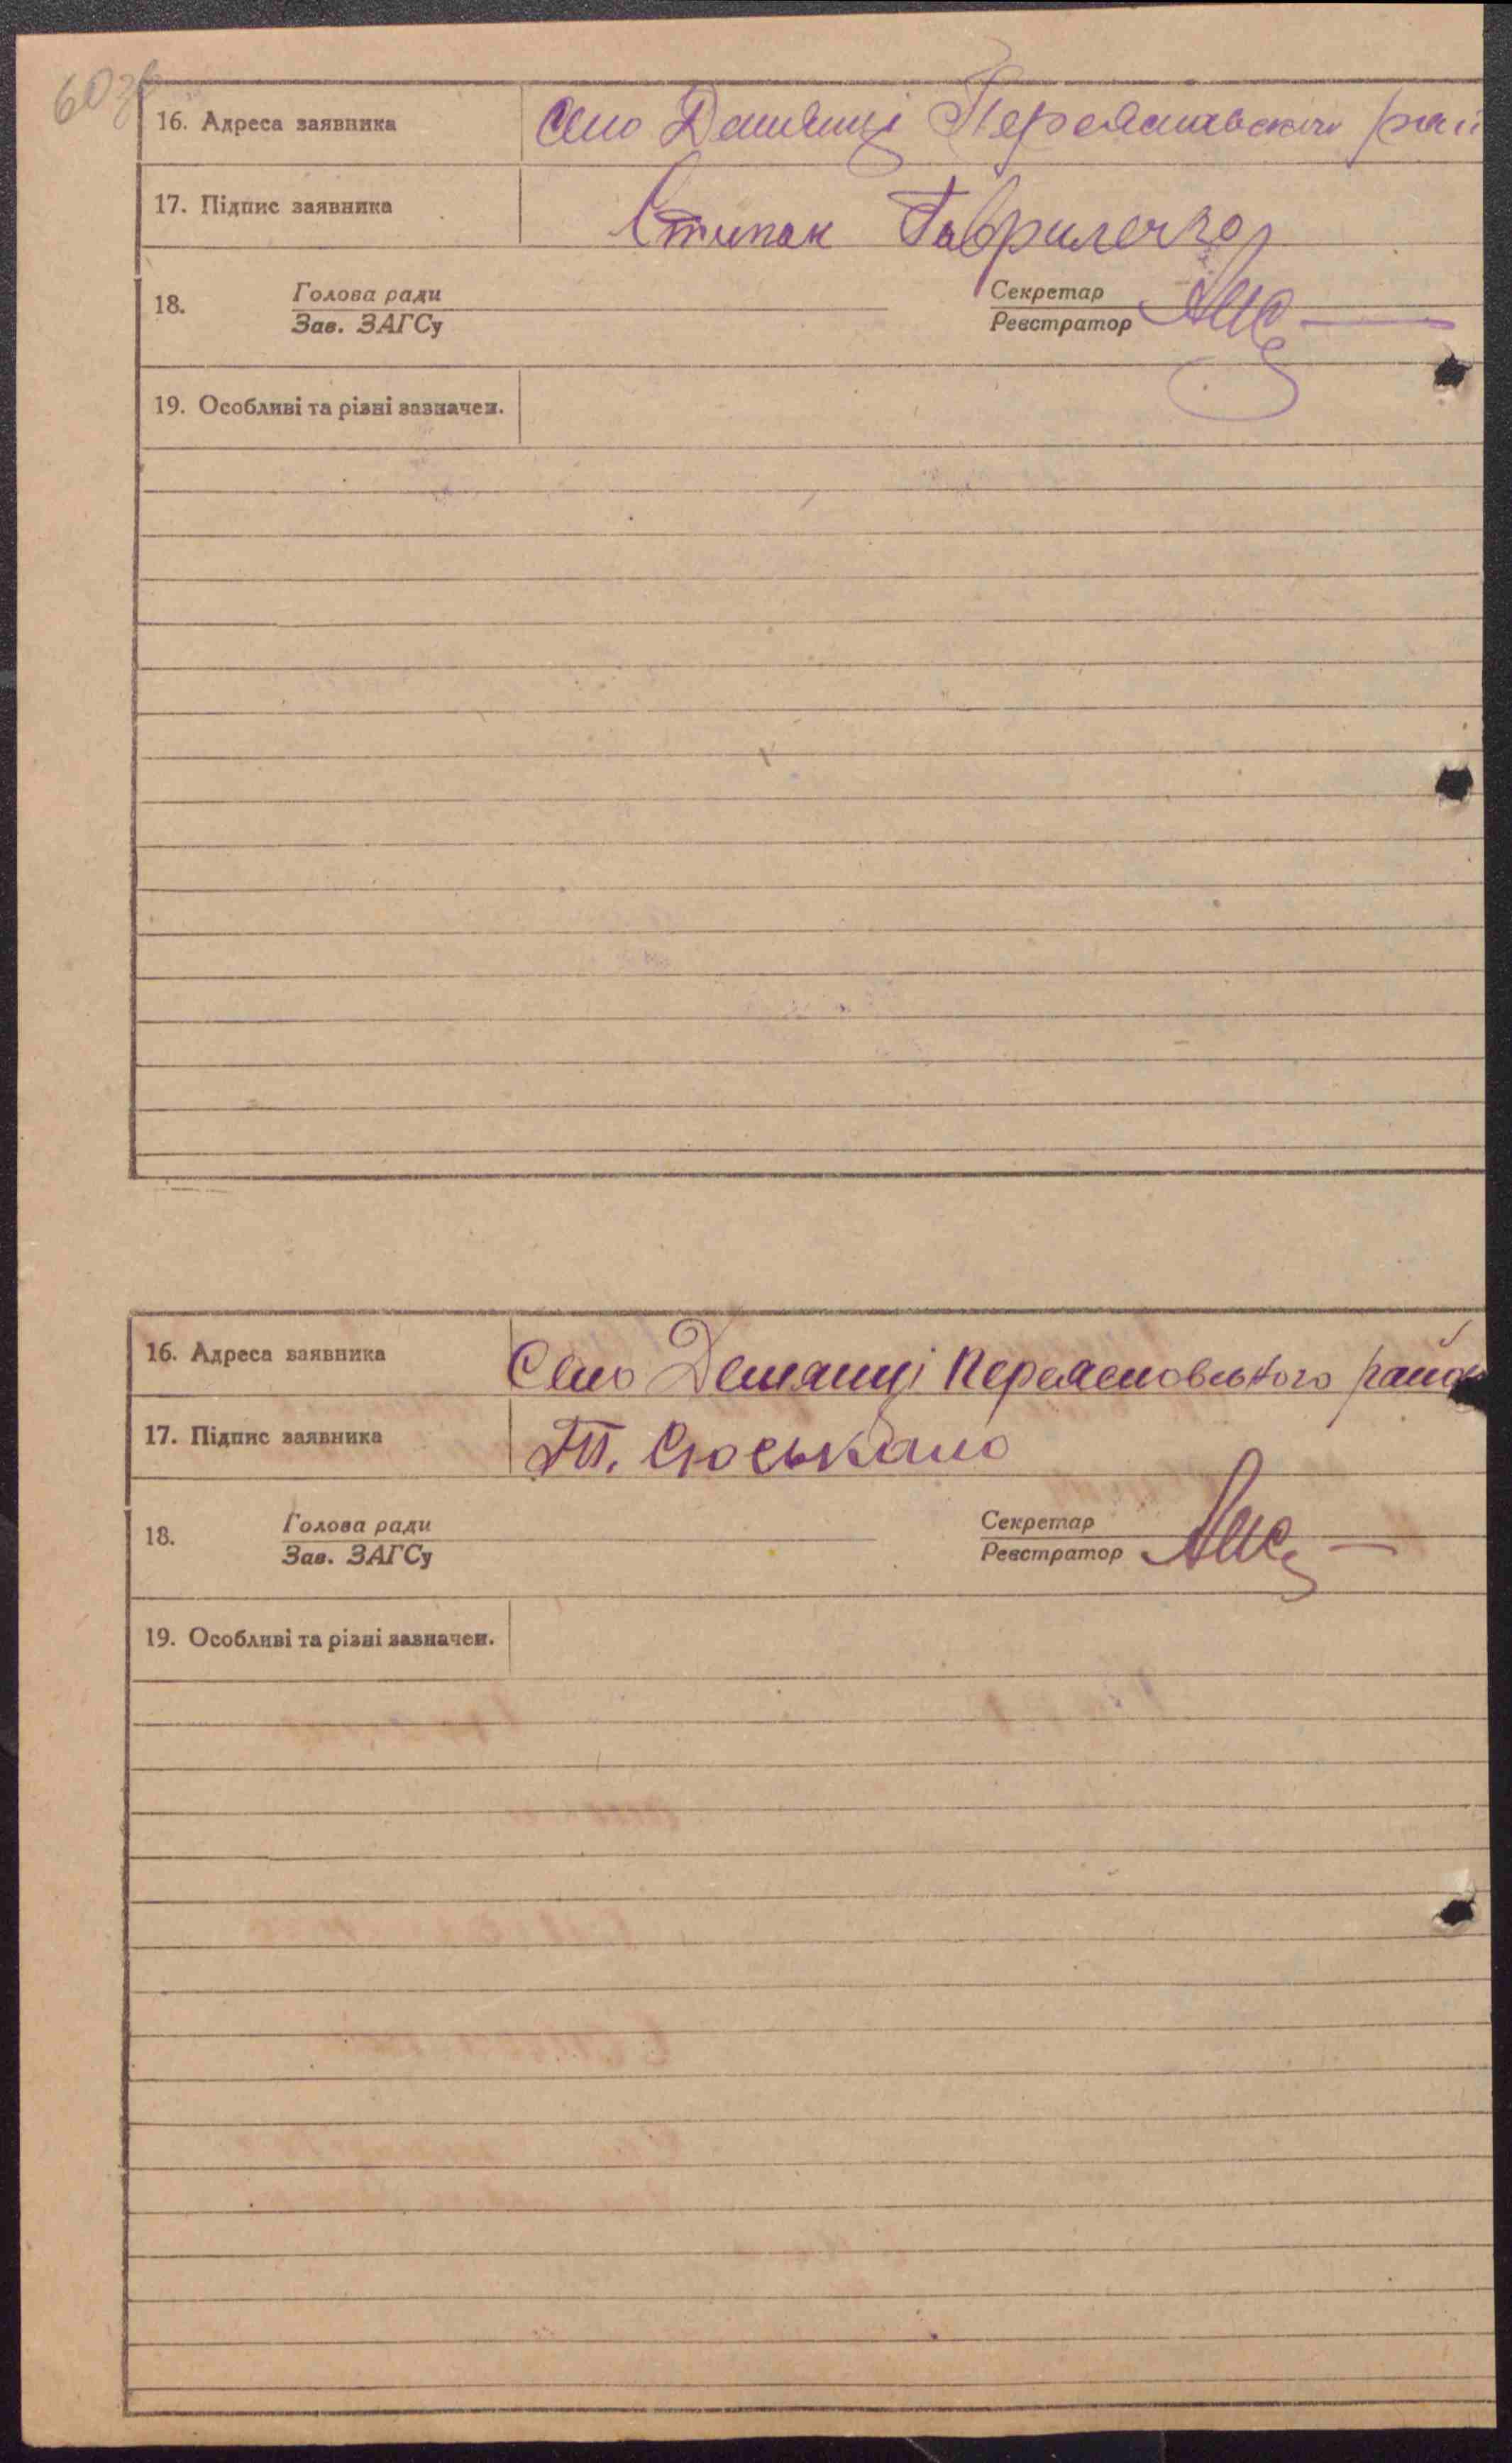 60зв
16. Адреса заявника Село Демянці Переяславського рай
17. Підпис заявника Стипак Гавриленко
18. Голова ради Секретар
Зав. ЗАГСу Реєстратор
19. Особливі та різні зазначен.
16. Адреса заявника Село Демянці Переясловського район
17. Підпис заявника Т. Сюськало
18. Голова ради Секретар
Зав. ЗАГСу Реєстратор
19. Особливі та різні зазначен.